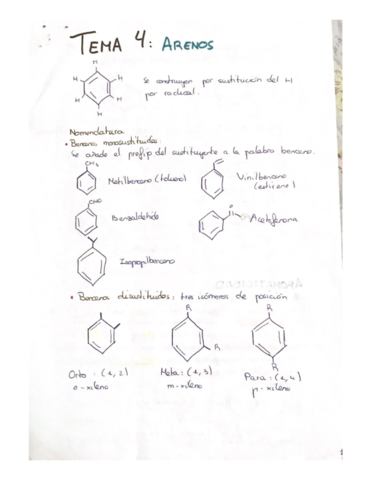 TEMA 4: ARENOS
H
H H
H H
H
Se construyen por sustitución del H
por radical.
Nomenclatura
• Benceno monosustituidos:
Se añade el prefijo del sustituyente a la palabra benceno.
CH3
Metilbenceno (tolueno)
Vinilbenceno
(estireno)
CHO
Benzaldehido
Acetofenona
Isopropilbenceno
• Benceno disustituidos: tres isómeros de posición
R R
R
R
Orto: (1,2) Meta: (1,3) Para: (1,4)
o-xileno m-xileno p-xileno